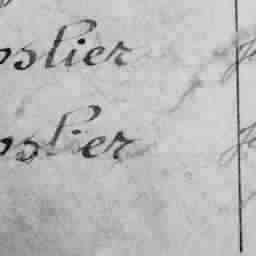 oslier
oslier